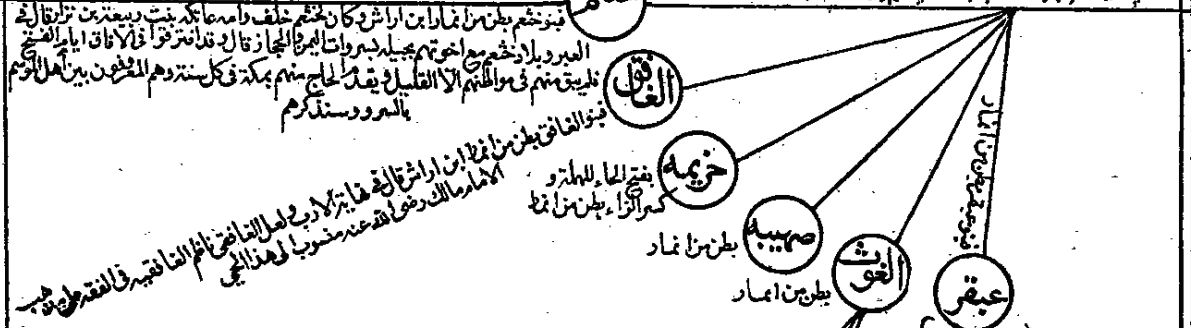 فبنو خثعم بطن من انمار ابن اراش وكان لخثعم خلف وامه عاتكه بنت ربيعة بن نزار قال في
العبر وبلاد خثعم مع اخوتهم بجيله بسروات اليمن والحجاز قال وقد افترقوا في الافاق ايام الفتح
فلم يبق منهم في مواطنهم الا القليل ويقدم الحاج منهم بمكة في كل سنة وهم المعروفون بين أهل الموسم
بالسرو وسنذكرهم
الغافق
فبنو الغافق بطن من انمار ابن اراش قال في نهاية الارب ولعل الغافقي ناظم الغافقيه في الفقه على مذهب
الامام مالك رضى الله عنه منسوب الى هذا الحي
خزيمه
بفتح الحاء المهملة و
كسر الزاء بطن من انمار
صهيبه
بطن من انمار
الغوث
بطن من انمار
عبقر
فبنو عبقر بطن من انمار